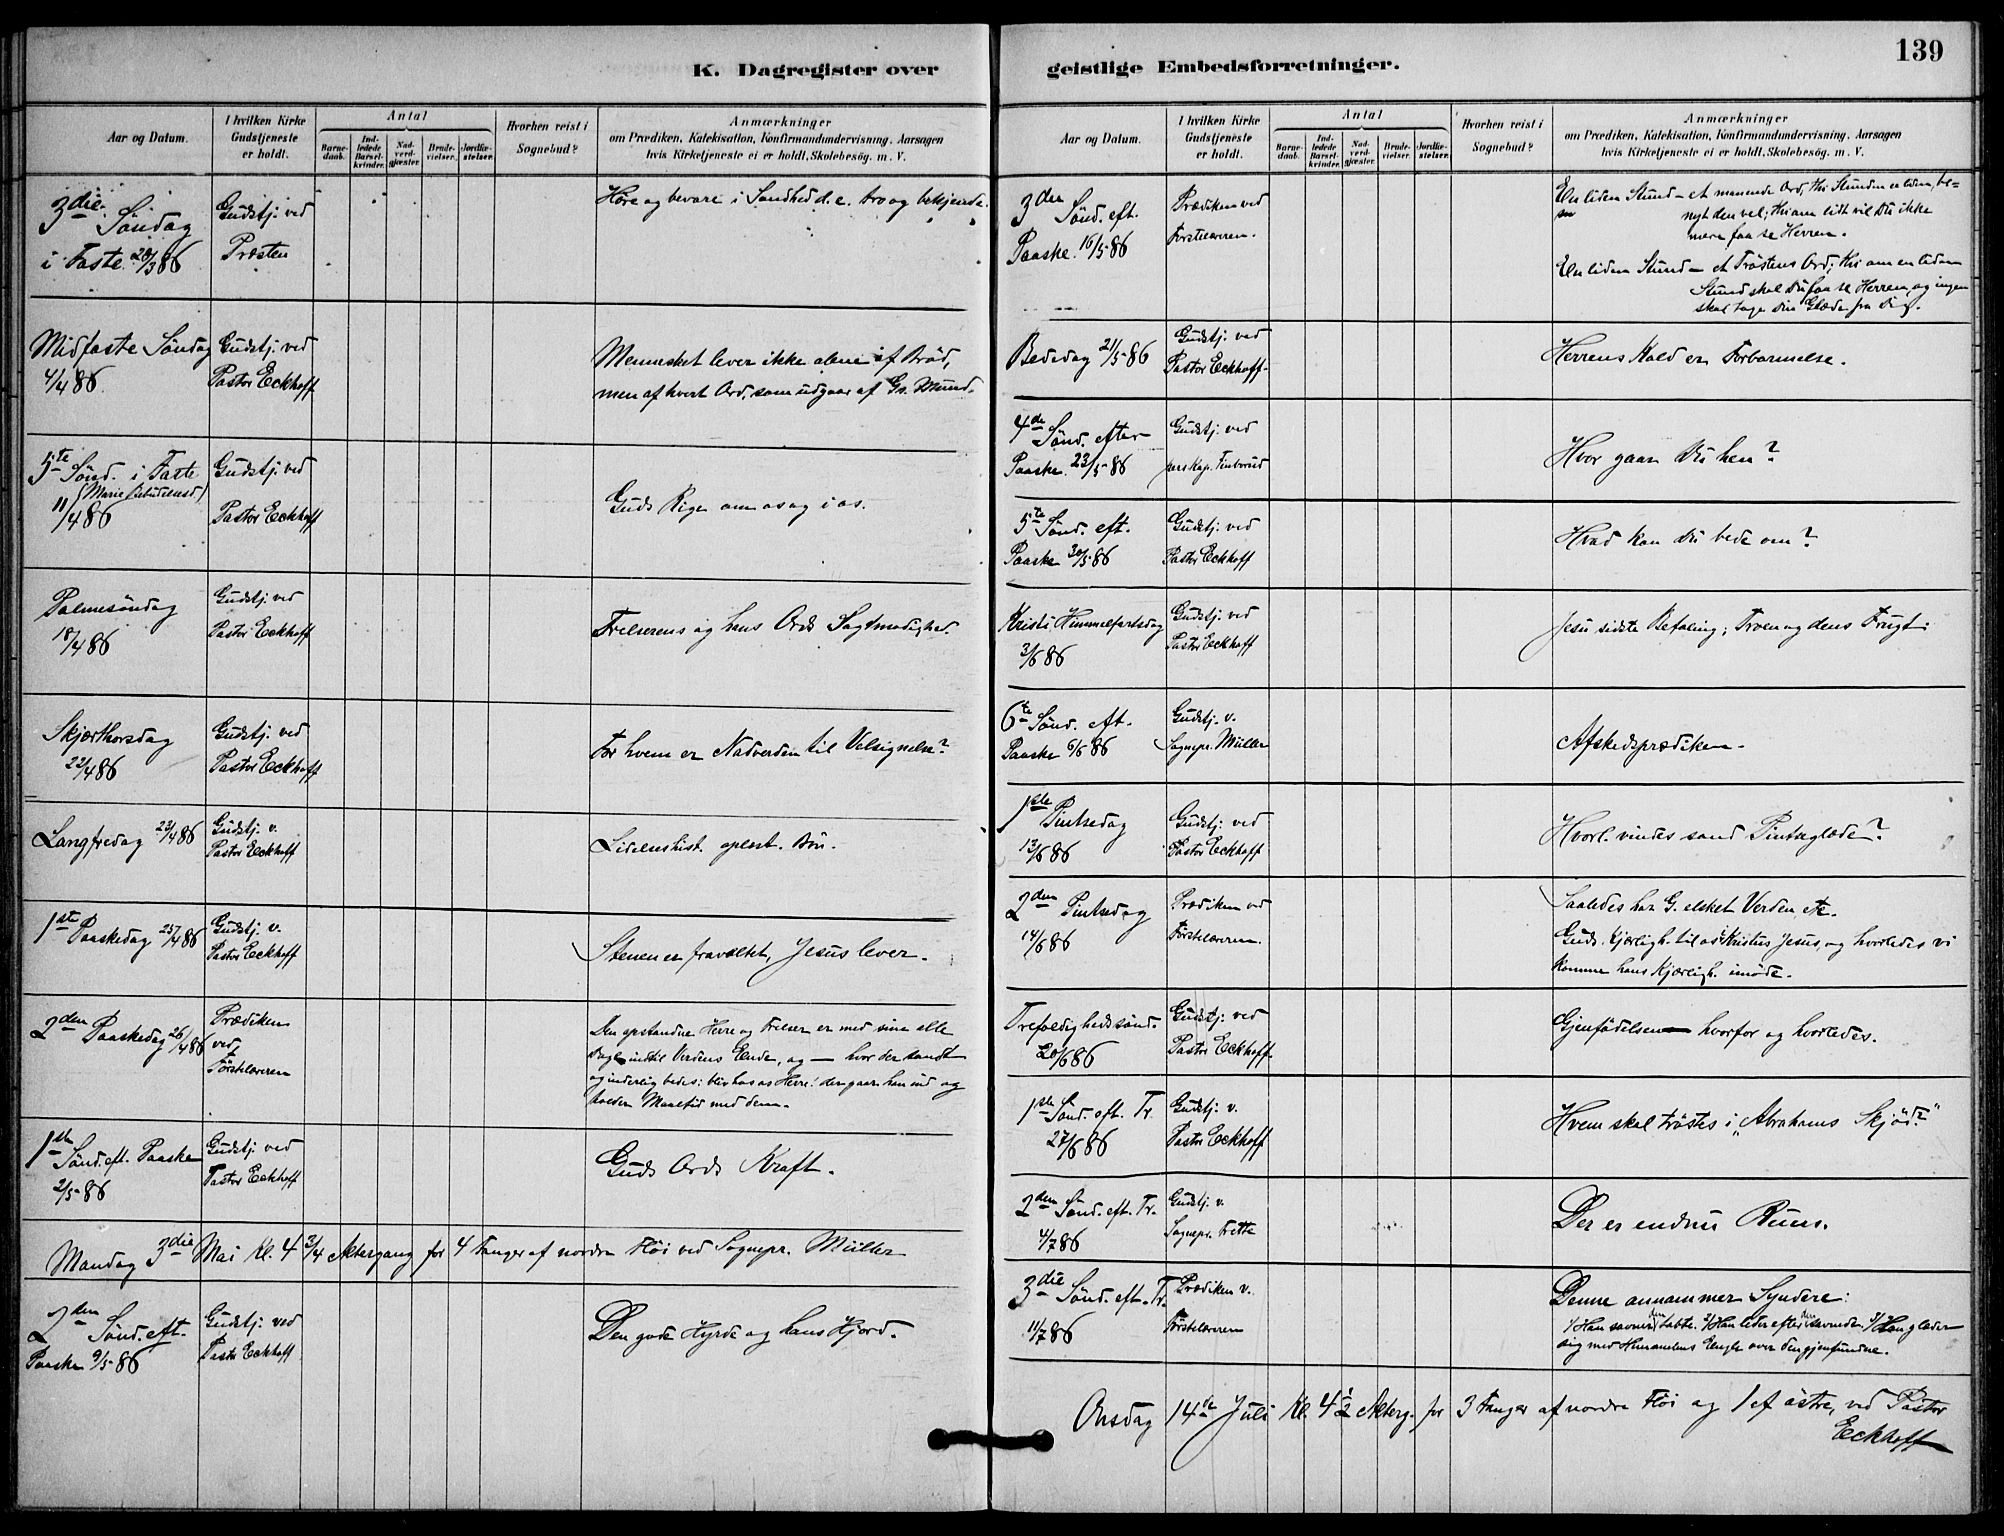 K. Dagregister over
Aar og Datum.
I hvilken Kirke
Gudstjeneste
er holdt.
Antal
Barne-
daab.
Ind-
ledede
Barsel-
kvinder.
Nad-
verd-
gjæster.
Brude-
vielser.
Jordfæ-
stelser.
Hvorhen reist i
Sognebud?
Anmærkninger
om Prædiken, Katekisation, Konfirmandundervisning, Aarsagen
hvis Kirketjeneste ei er holdt, Skolebesøg. m. V.
3die Søndag
i Faste 28/3 86
Gudstj. ved
Præsten
Høre og bevare i Sandhed d. e. tro og bekjende.
Midfaste Søndag
4/4 86.
Gudstj. ved
Pastor Eckhoff
Mennesket lever ikke alene af Brød,
men af hvert Ord, som udgaar af Gs. Mund.
5te Sønd. i Faste
(Marie Bebudelsesd.)
11/4 86
Gudstj. ved
Pastor Eckhoff
Guds Rige om os og i os.
Palmesøndag
18/4 86
Gudstj. ved
Pastor Eckhoff
Frelserens og hans Ords Sagtmodighed.
Skjærthorsdag
22/4 86
Gudstj. ved
Pastor Eckhoff
For hvem er Nadverden til Velsignelse?
Langfredag 23/4 86
Gudstj. v.
Pastor Eckhoff
Lidelseshist. oplæst. Bøn.
1ste Paaskedag 25/4 86
Gudstj. v.
Pastor Eckhoff
Stenen er fravæltet, Jesus lever.
2den Paaskedag 26/4 86
Prædiken
ved
Førstelæreren
Den opstandne Herre og Frelser er med sine alle
Dage indtil Verdens Ende, og — hvor der sandt
og inderlig bedes: bliv hos os Herre! der gaar han ind og
holder Maaltid med dem.
1ste Sønd. eft. Paaske
2/5 86
Gudstj. ved
Pastor Eckhoff
Guds Ords Kraft.
Mandag 3die Mai Kl. 4 3/4 Altergang for 4 Fanger af nordre Fløi ved Sognepr. Müller
2den Sønd. eft.
Paaske 9/5 86
Gudstj. ved
Pastor Eckhoff
Den gode Hyrde og hans Hjord.
139
geistlige Embedsforretninger.
Aar og Datum.
I hvilken Kirke
Gudstjeneste
er holdt.
Antal
Barne-
daab.
Ind-
ledede
Barsel-
kvinder.
Nad-
verd-
gjæster.
Brude-
vielser.
Jordfæ-
stelser.
Hvorhen reist i
Sognebud?
Anmærkninger
om Prædiken, Katekisation, Konfirmandundervisning, Aarsagen
hvis Kirketjeneste ei er holdt, Skolebesøg. m. V.
3den Sønd. eft.
Paaske. 16/5 86
Prædiken ved
Førstelæreren.
En liden Stund — et manende Ord; thi Stunden er liden, be-
nyt den vel; thi om lidt vil Du ikke
mere faa se Herren.
En liden Stund — et Trøstens Ord; thi om en liden
Stund skal Du faa se Herren, og ingen
skal tage Din Glæde fra Dig.
Bededag 21/5 86
Gudstj. ved
Pastor Eckhoff.
Herrens Kald er Forbarmelse.
4de Sønd. efter
Paaske. 23/5 86
Gudstj. ved
pers. Kap. Finborud
Hvor gaar Du hen?
5te Sønd. eft.
Paaske 30/5 86
Gudstj. ved
Pastor Eckhoff
Hvad kan Du bede om?
Kristi Himmelfartsdag
3/6 86
Gudstj. ved
Pastor Eckhoff
Jesu sidste Befaling; Troen og dens Frugt.
6te Sønd. eft.
Paaske 6/6 86
Gudstj. v.
Sognepr. Müller
Afskedsprædiken.
1ste Pintsedag
13/6 86
Gudstj. ved
Pastor Eckhoff
Hvorl. vindes sand Pintseglæde?
2den Pintsedag
14/6 86
Prædiken ved
Førstelæreren.
Saaledes har G. elsket Verden etc.
Guds Kjærligh. til os i Kristus Jesus, og hvorledes vi
komme hans Kjærligh. imøde.
Trefoldighedssønd.
20/6 86
Gudstj. ved
Pastor Eckhoff.
Gjenfødelsen — hvorfor og hvorledes.
1ste Sønd. eft. Tr.
27/6 86
Gudstj. v.
Pastor Eckhoff
Hvem skal trøstes i „Abrahams Skjød?“
2den Sønd. eft. Tr.
4/7 86
Gudstj. v.
Sognepr. Frette
Der er endnu Rum.
3die Sønd. eft. Tr.
11/7 86
Prædiken v.
Førstelæreren
Denne annammer Syndere:
1/ Han savner den tabte. 2/ Han leder efter den savnede. 3/ Han glæder
sig med Himmelens Engle over den gjenfundne.
Onsdag 14de Juli Kl. 4 1/2 Alterg. for 3 Fanger af nordre Fløi og 1 af østre, ved Pastor
Eckhoff